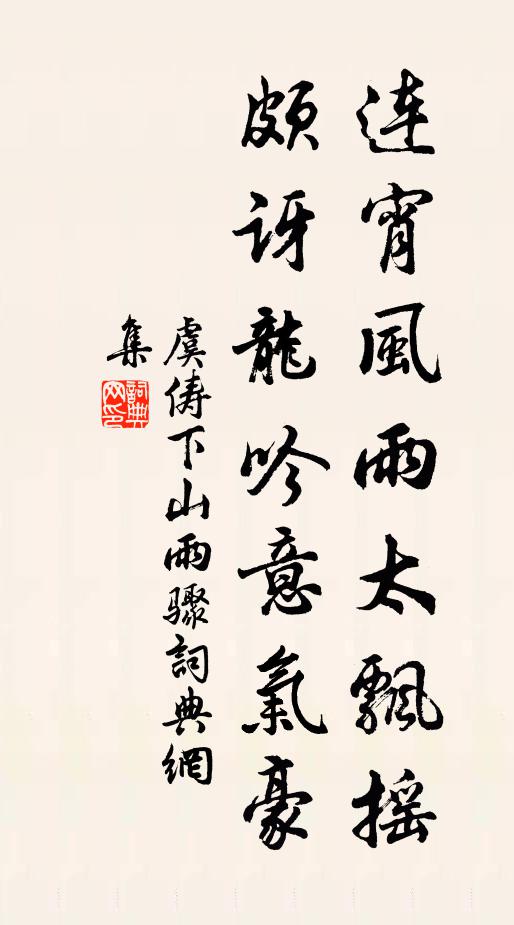 連宵風雨太飄摇
頗訝龍吟意氣豪
虞儔下山雨驟詞典網
集
詞典網印